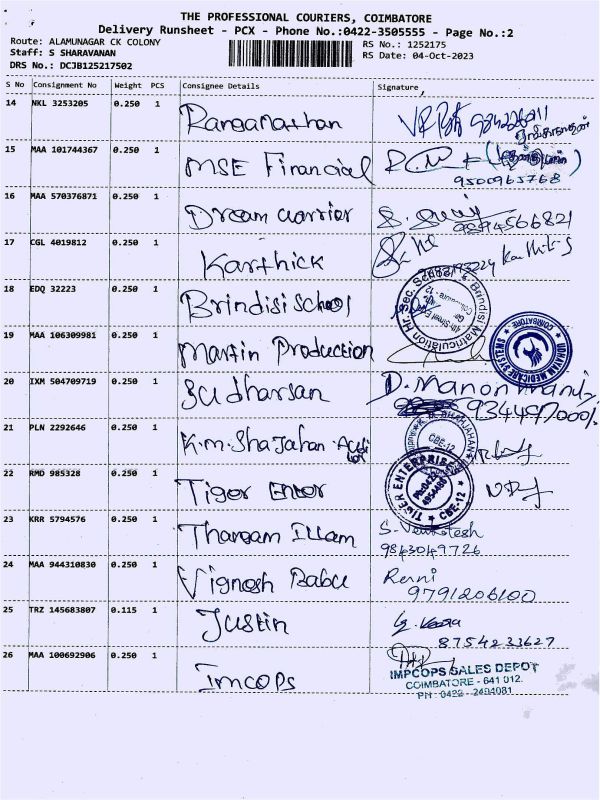 THE PROFESSIONAL COURIERS, COIMBATORE
Delivery Runsheet - PCX - Phone No.:0422-3505555 - Page No.:2
Route: ALAMUNAGAR CK COLONY
RS No.: 1252175
Staff: S SHARAVANAN
RS Date: 04-Oct-2023
DRS No.: DCJB125217502
S No Consignment No Weight PCS Consignee Details Signature
14 NKL 3253205 0.250 1 Ranganathan
15 MAA 101744367 0.250 1 MSE Financial
9500965768
16 MAA 570376871 0.250 1 Dream warrior
9894566821
17 CGL 4019812 0.250 1 Karthick Karthik S
18 EDQ 32223 0.250 1 Brindisi School
Brindisi Matriculation Hr. Sec. School
19 MAA 106309981 0.250 1 Martin Production
UDHAYAM MEDICARE SYSTEMS COIMBATORE
20 IXM 504709719 0.250 1 Sudharsan D. Manon
21 PLN 2292646 0.250 1 K.M. Shajahan Auditor
CBE-12
22 RMD 985328 0.250 1 Tiger Enter
TIGER ENTERPRISE CBE-12
23 KRR 5794576 0.250 1 Thangam Illam S. Venkatesh
9843049726
24 MAA 944310830 0.250 1 Vignesh Babu Renni
9791206100
25 TRZ 145683807 0.115 1 Justin
8754233627
26 MAA 100692906 0.250 1 Imcops
IMPCOPS SALES DEPOT
COIMBATORE - 641 012.
PH : 0422 - 2494081